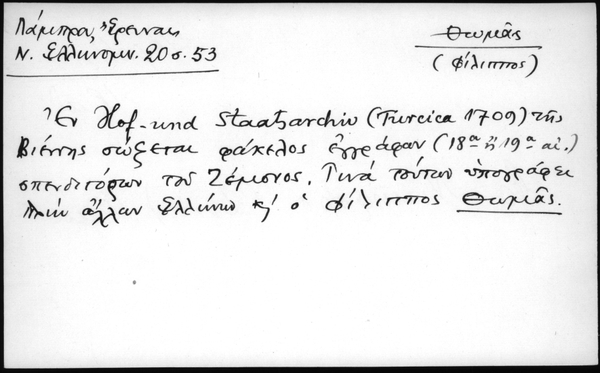 Λάμπρου, Ἔρευναι
Ν. Ἑλληνομν. 20 σ. 53
Θωμᾶς
(Φίλιππος)
Ἐν Hof-und Staatsarchiv (Turcica 1709) τῆς
Βιέννης σώζεται φάκελος ἐγγράφων (18ᾳ ἢ 19ᾳ αἰ.)
σπενδιτόρων τοῦ Ζέμονος. Τινὰ τούτων ὑπογράφει
πλὴν ἄλλων Ἑλλήνων κ) ὁ Φίλιππος Θωμᾶς.